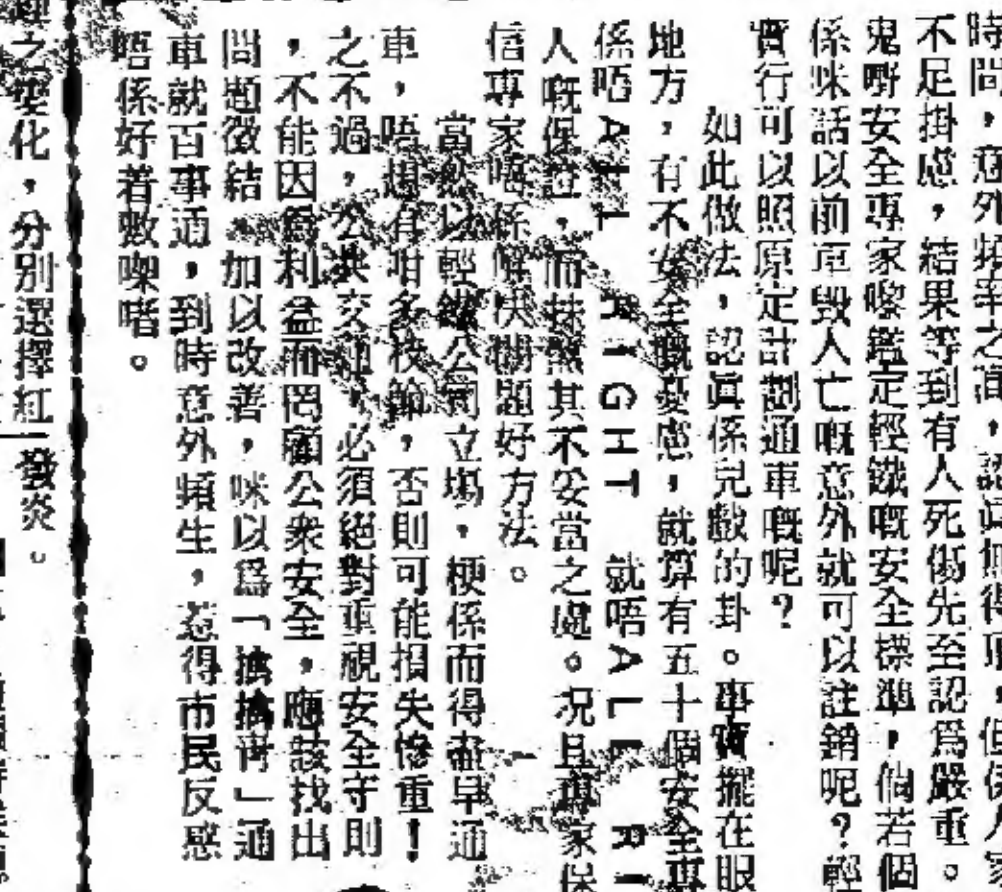 時間，意外頻率之高，認眞無得頂，但係人家
不足掛慮，結果等到有人死傷先至認爲嚴重。
鬼嘢安全專家嚟鑑定輕鐵嘅安全標準，倘若個
係咪話以前車毀人亡嘅意外就可以註銷呢？輕
實行可以照原定計劃通車嘅呢？
如此做法，認眞係兒戲的卦。事實擺在眼
地方，有不安全嘅憂慮，就算有五十個安全專
係唔ALL RIGHT 就唔ALL RI
人嘅保證，而抹煞其不妥當之處。况且專家保
信專家唔係解决問題好方法。
當然以輕鐵公司立場，梗係而得盡早通
車，唔想有咁多枝節，否則可能損失慘重！
之不過，公共交通，必須絕對重視安全守則
，不能因爲利益而罔顧公衆安全，應該找出
問題徵結，加以改善，咪以爲「擒擒靑」通
車就百事通，到時意外頻生，惹得市民反感
唔係好着數㗎喈。
之變化，分別選擇紅
發炎。